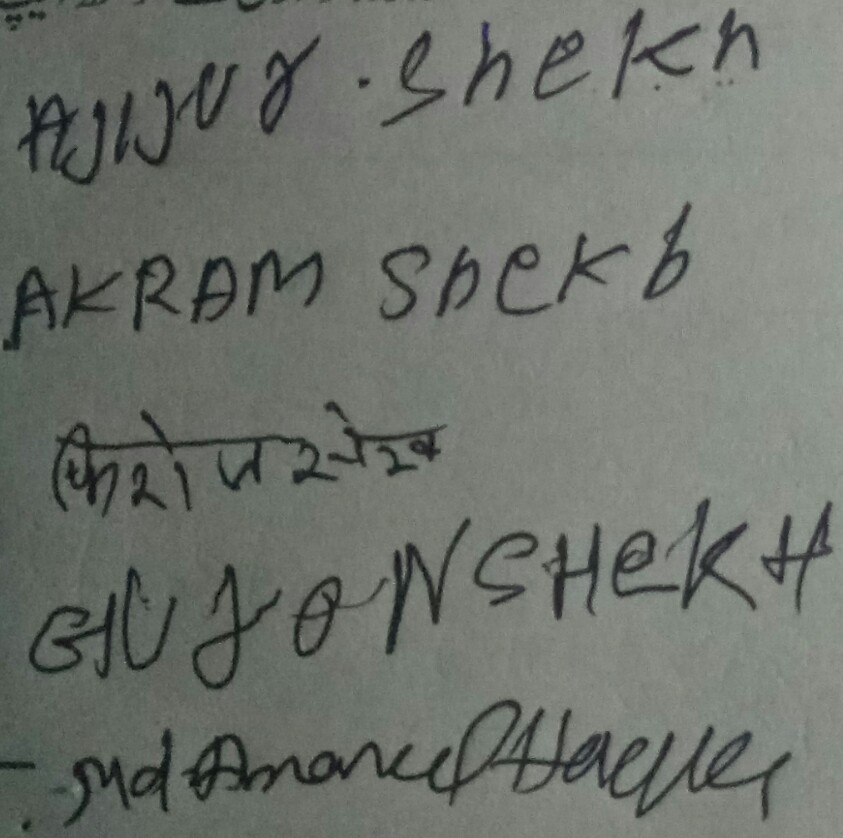 AJIJUR . Shekh
AKRAM Shekh
फिरोज शेख
SHEKH
Md Amanul Haque